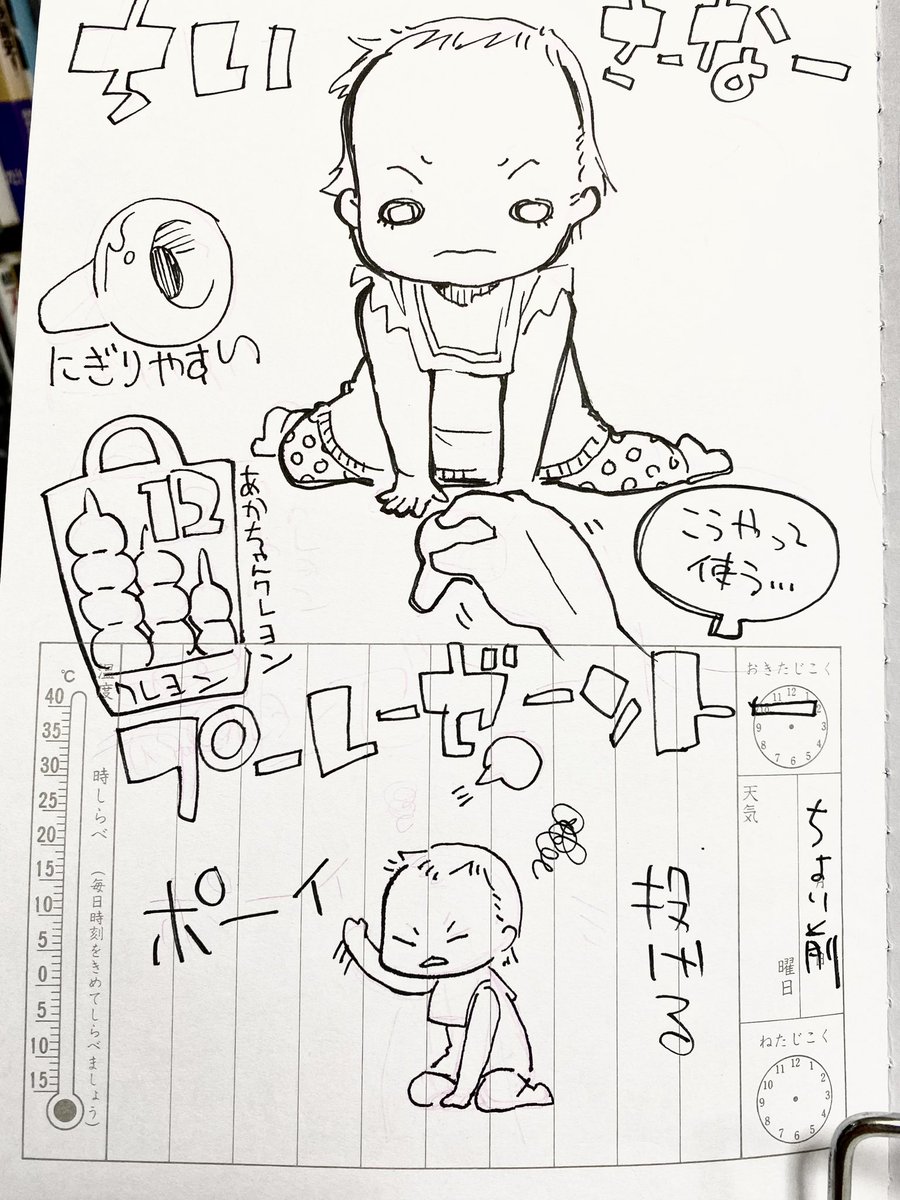 にぎりやすい
12
あかちゃんクレヨン
クレヨン
こうやって
使う…
プーレーゼーントー
ポーイ
ちょい前
おきたじこく
天気
曜日
ねたじこく
温度
℃
40
35
30
25
20
15
10
5
0
5
10
15
時しらべ（毎日時刻をきめてしらべましょう）